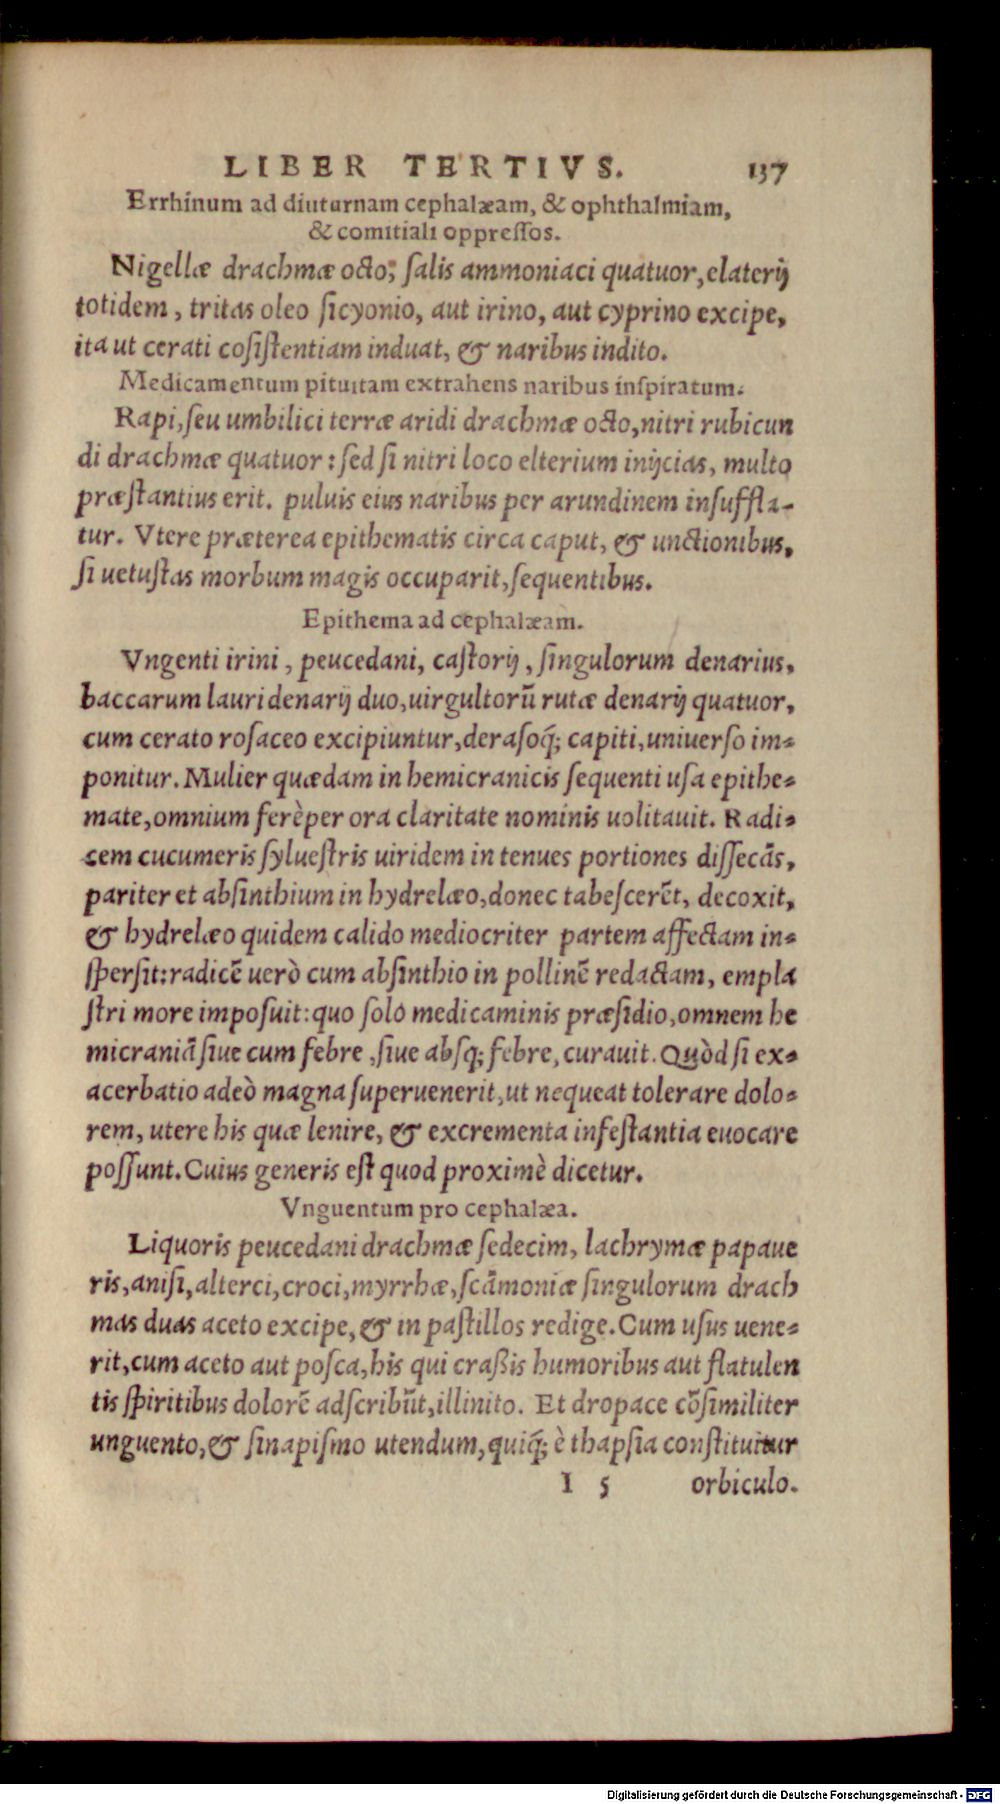 LIBER TERTIVS. 137
Errhinum ad diuturnam cephalæam, & ophthalmiam,
& comitiali oppreſſos.
Nigellæ drachmæ octo; ſalis ammoniaci quatuor, elaterij
totidem, tritas oleo ſicyonio, aut irino, aut cyprino excipe,
ita ut cerati coſiſtentiam induat, & naribus indito.
Medicamentum pituitam extrahens naribus inſpiratum.
Rapi, ſeu umbilici terræ aridi drachmæ octo, nitri rubicun
di drachmæ quatuor: ſed ſi nitri loco elterium inijcias, multo
præſtantius erit. puluis eius naribus per arundinem inſuffla-
tur. Vtere præterea epithematis circa caput, & unctionibus,
ſi uetuſtas morbum magis occuparit, ſequentibus.
Epithema ad cephalæam.
Vngenti irini, peucedani, caſtorij, ſingulorum denarius,
baccarum lauri denarij duo, uirgultorũ rutæ denarij quatuor,
cum cerato roſaceo excipiuntur, deraſoq́; capiti, uniuerſo im-
ponitur. Mulier quædam in hemicranicis ſequenti uſa epithe-
mate, omnium ferè per ora claritate nominis uolitauit. Radi-
cem cucumeris ſylueſtris uiridem in tenues portiones diſſecãs,
pariter et abſinthium in hydrelæo, donec tabeſcerẽt, decoxit,
& hydrelæo quidem calido mediocriter partem affectam in-
ſperſit: radicẽ uerò cum abſinthio in pollinẽ redactam, empla
ſtri more impoſuit: quo ſolo medicaminis præſidio, omnem he
micraniã ſiue cum febre, ſiue abſq; febre, curauit. Quòd ſi ex-
acerbatio adeò magna ſuperuenerit, ut nequeat tolerare dolo-
rem, utere his quæ lenire, & excrementa infeſtantia euocare
poſſunt. Cuius generis eſt quod proximè dicetur.
Vnguentum pro cephalæa.
Liquoris peucedani drachmæ ſedecim, lachrymæ papaue
ris, aniſi, alterci, croci, myrrhæ, ſcãmoniæ ſingulorum drach
mas duas aceto excipe, & in paſtillos redige. Cum uſus uene-
rit, cum aceto aut poſca, his qui craßis humoribus aut flatulen
tis ſpiritibus dolorẽ adſcribũt, illinito. Et dropace cõſimiliter
unguento, & ſinapiſmo utendum, quiq́; è thapſia conſtituitur
I 5 orbiculo.
Digitalisierung gefördert durch die Deutsche Forschungsgemeinschaft - DFG